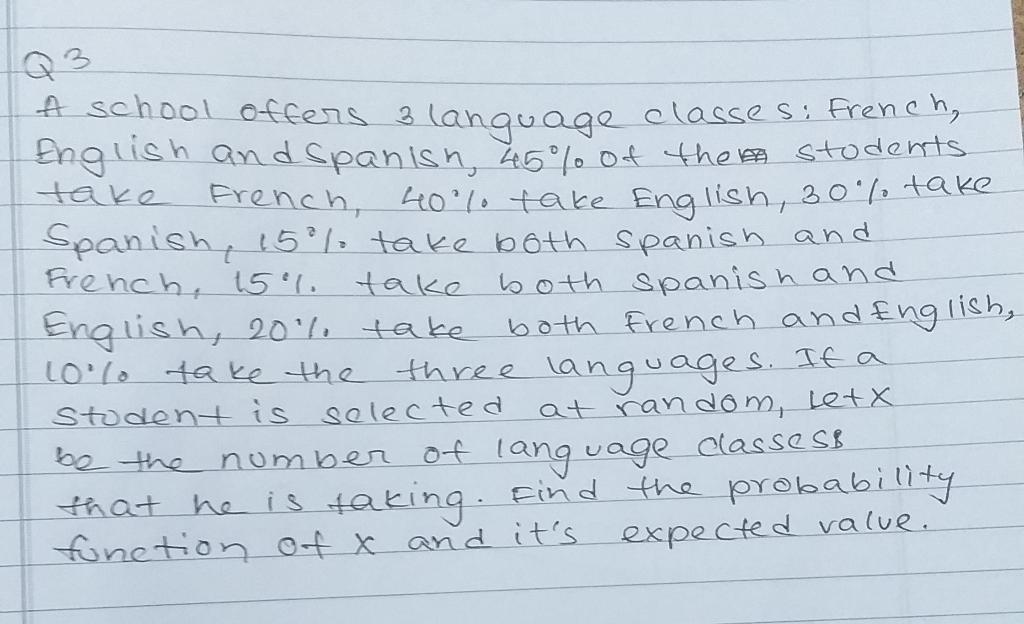 Q3
A school offers 3 language classes: French,
English and Spanish, 45% of the stodents
take French, 40% take English, 30% take
Spanish, 15% take both Spanish and
French, 15% take both Spanish and
English, 20% take both French and English,
10% take the three languages. If a
stodent is selected at random, Let X
be the nomber of language classess
that he is taking. Find the probability
function of X and it's expected value.